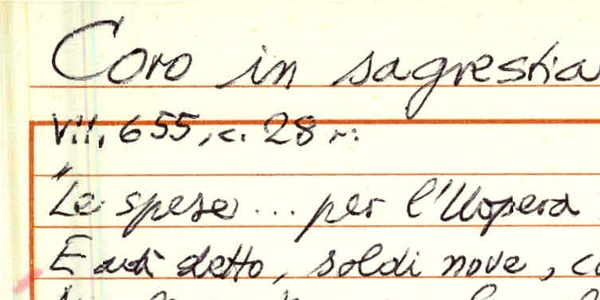 Coro in sagrestia
VII, 655, c. 28 r.
"Le spese ... per l'Uopera
E adì detto, soldi nove, co